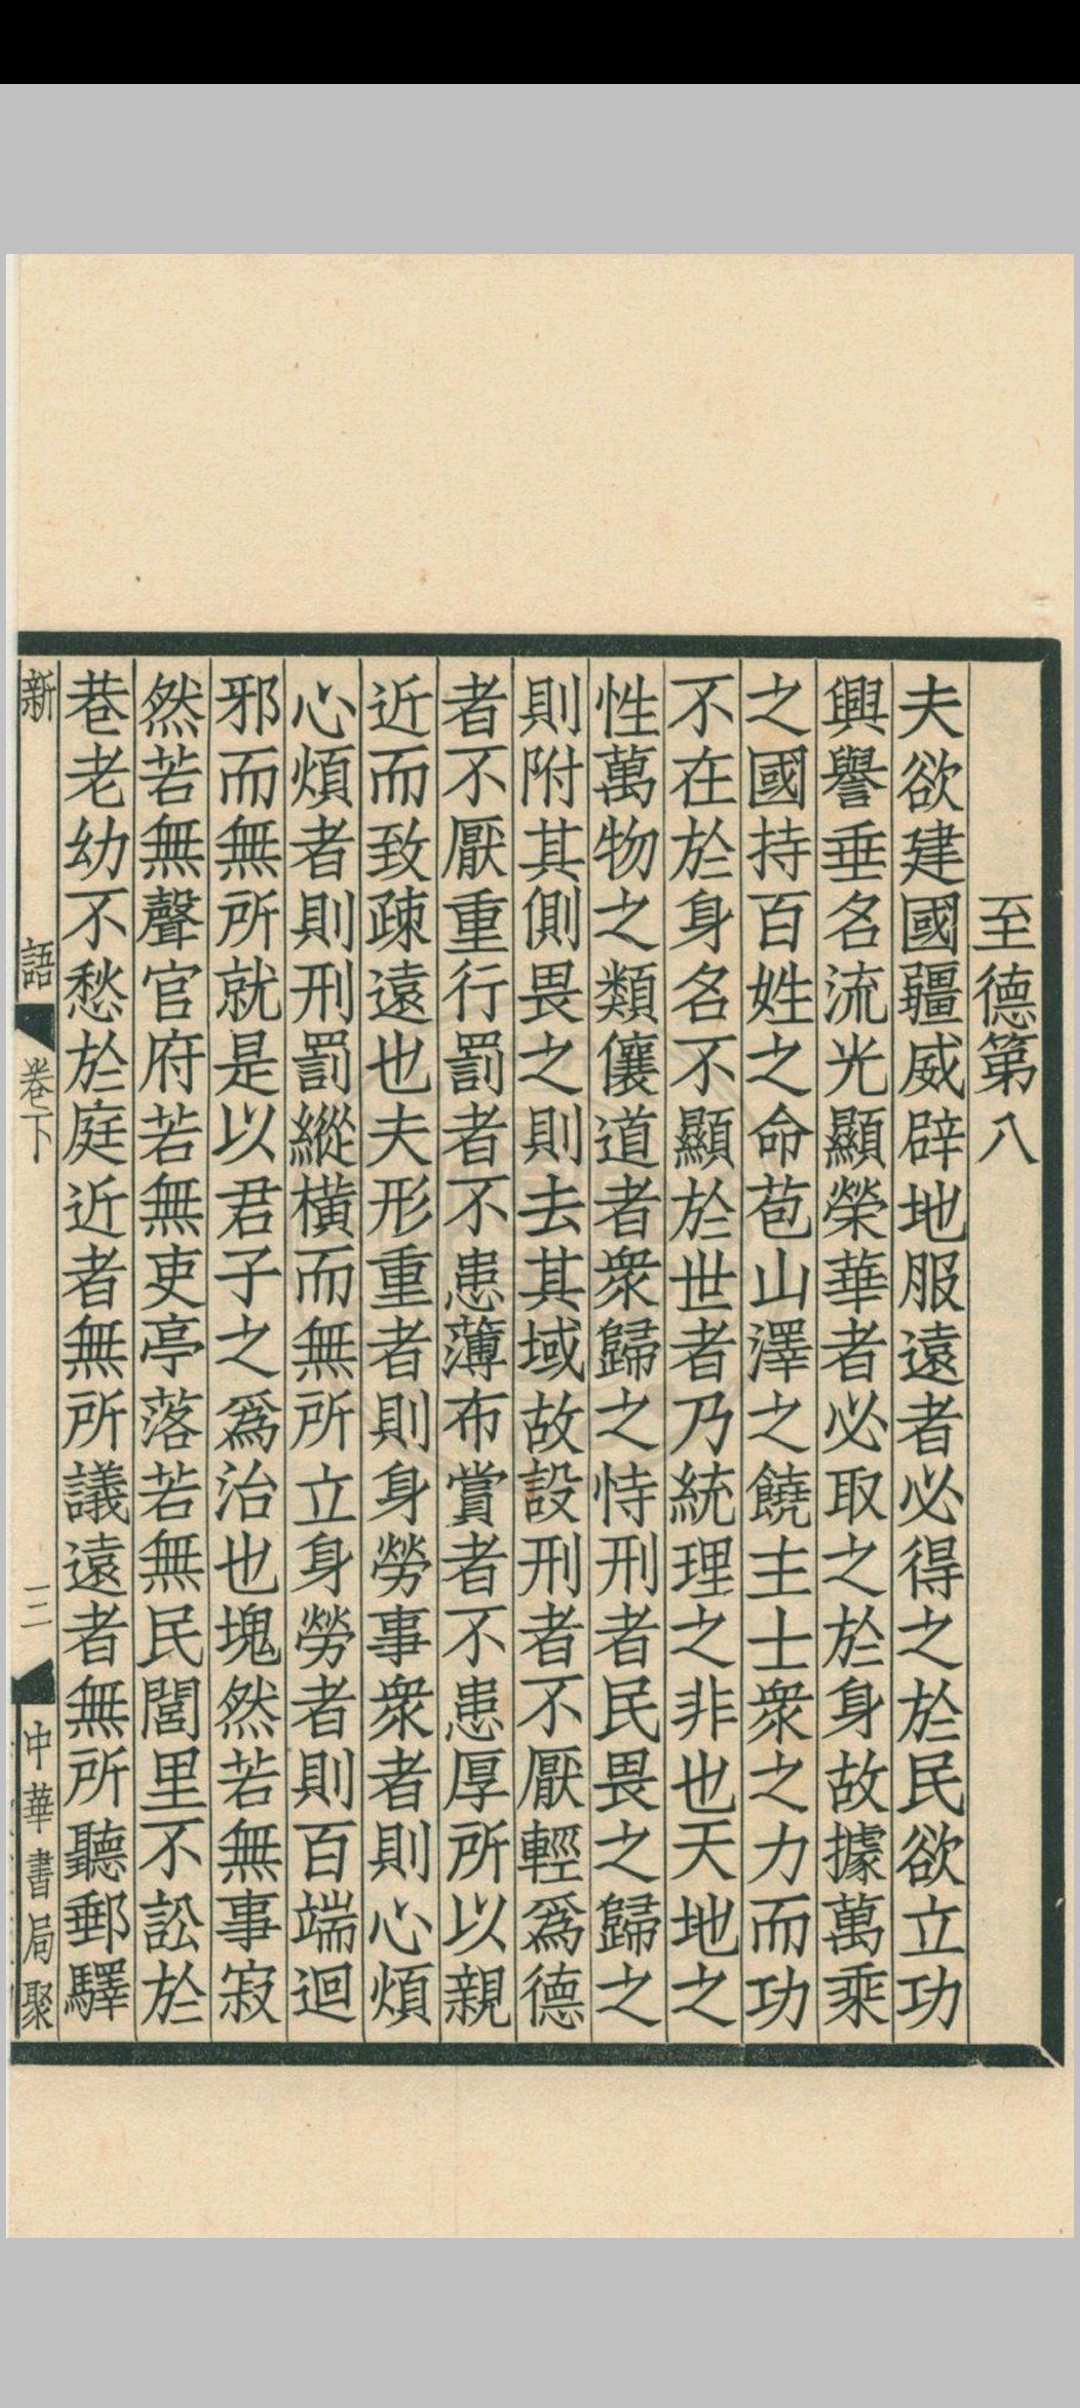 至德第八
夫欲建國疆威辟地服遠者必得之於民欲立功
興譽垂名流光顯榮華者必取之於身故據萬乘
之國持百姓之命苞山澤之饒主士衆之力而功
不在於身名不顯於世者乃統理之非也天地之
性萬物之類儴道者衆歸之恃刑者民畏之歸之
則附其側畏之則去其域故設刑者不厭輕爲德
者不厭重行罰者不患薄布賞者不患厚所以親
近而致疎遠也夫形重者則身勞事衆者則心煩
心煩者則刑罰縱橫而無所立身勞者則百端迴
邪而無所就是以君子之爲治也塊然若無事寂
然若無聲官府若無吏亭落若無民閭里不訟於
巷老幼不愁於庭近者無所議遠者無所聽郵驛
新語 卷下 二 中華書局聚